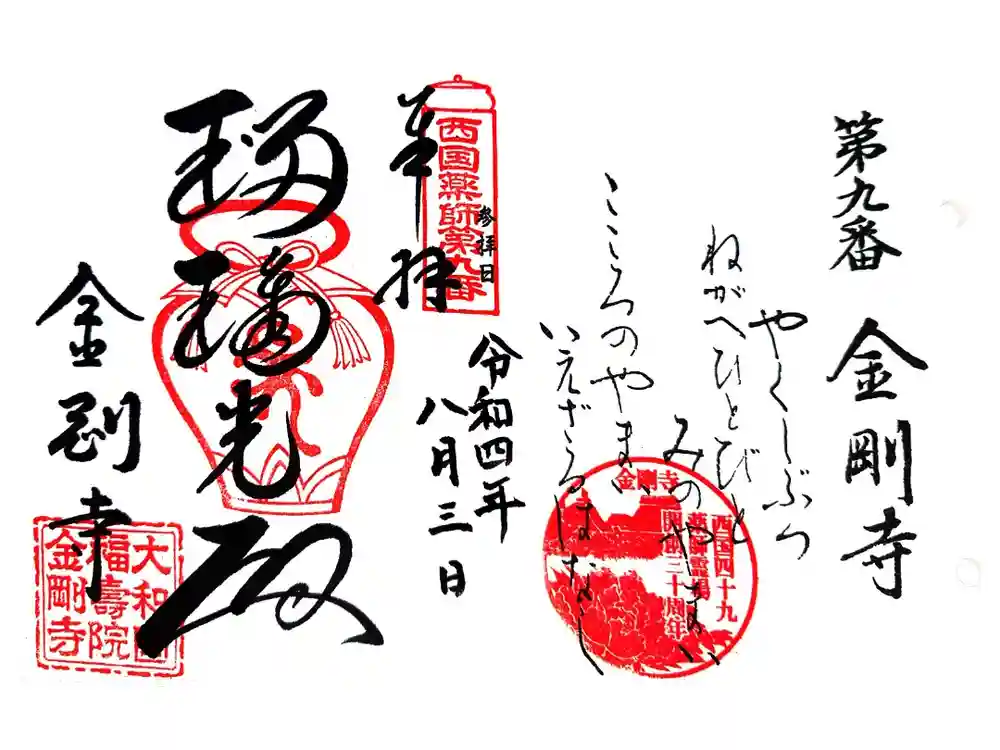 第九番 金剛寺
やくしぶつ
ねがへひとびと
みのやまい
こころのやまい
いえざるはなし
金剛寺
西国四十九
薬師霊場
開創三十周年
奉拝
西国薬師第九番
参拝日
令和四年
八月三日
瑠璃光殿
金剛寺
大和国
福壽院
金剛寺